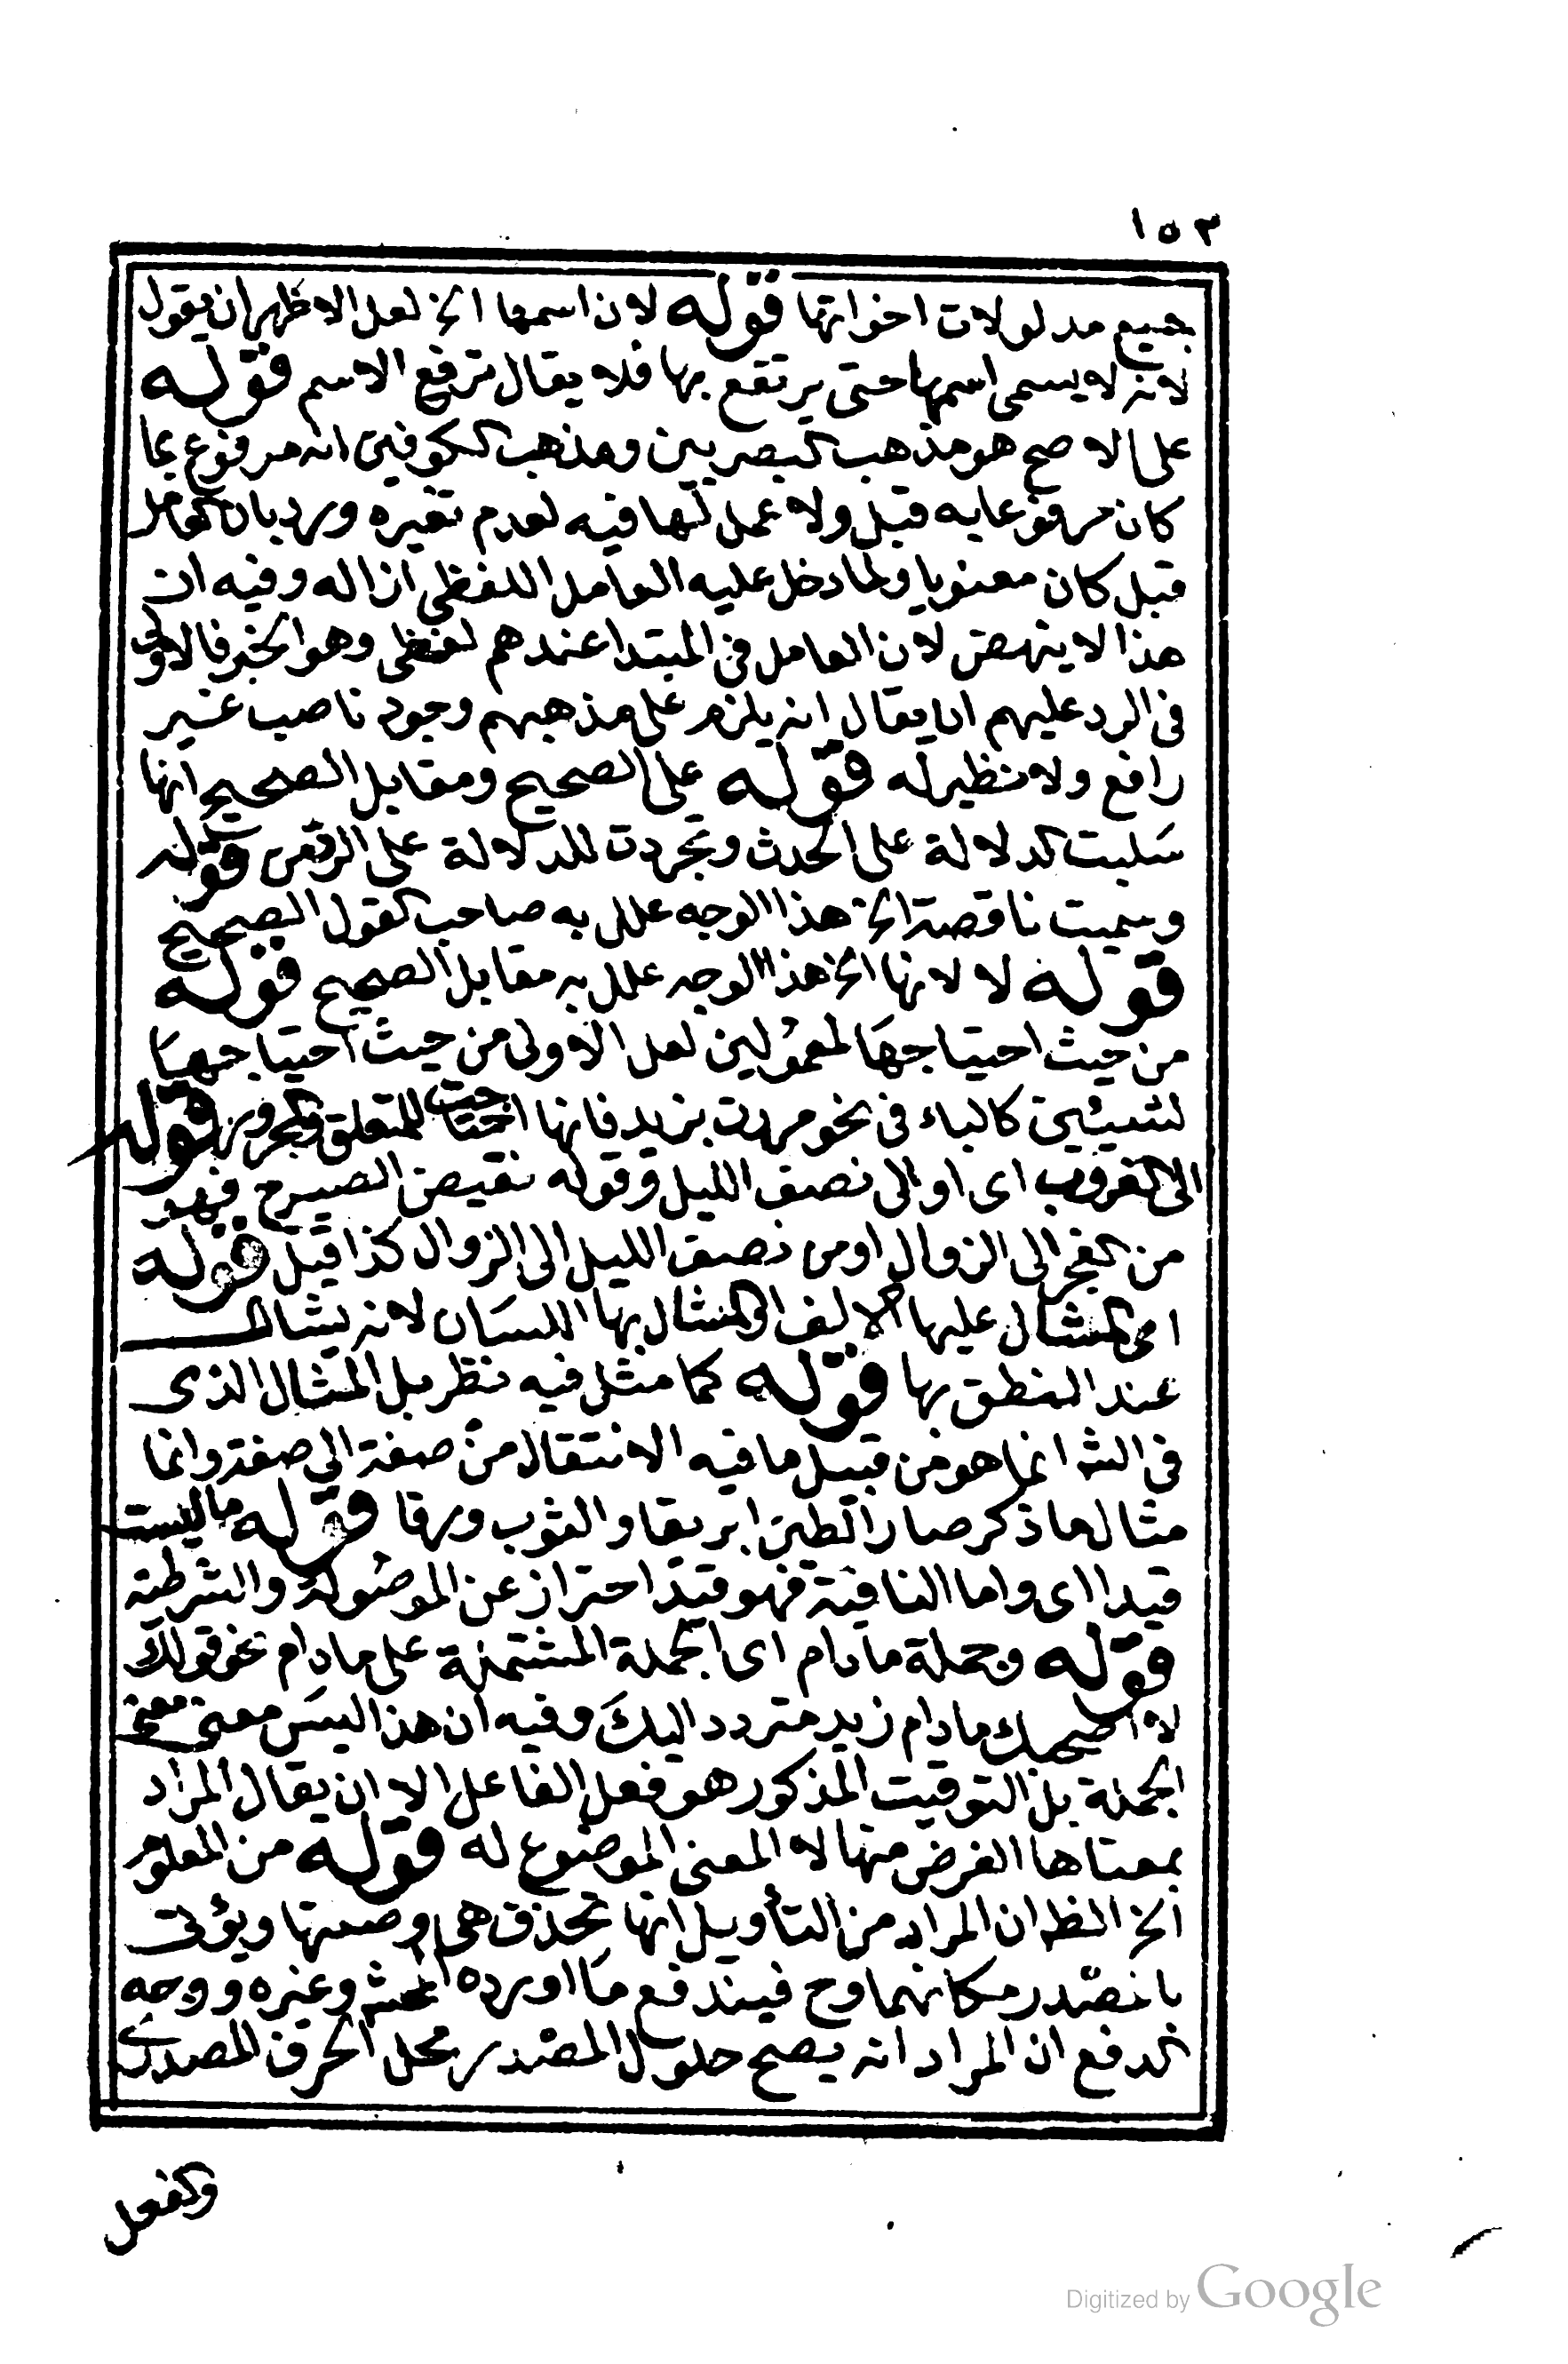 ١٥٣
جميع مدلولات اخواتها قوله لان اسمها الخ لعل الاظهر ان يقول
لانه لا يسمى اسمها حتى يرتفع بها فلا يقال ترفع الاسم قوله
على الاصح هو مذهب البصريين ومذهب الكوفيين انه مرفوع بما
كان مرفوعا به قبل ولا عمل لها فيه لعدم تغيره ورد بان العامل
قبل كان معنويا ولما دخل عليه العامل اللفظي ازاله وفيه ان
هذا لا ينهض لان العامل في المبتدا عندهم لفظي وهو الخبر فالاولى
في الرد عليهم ان يقال انه يلزم على مذهبهم وجود ناصب غير
رافع ولا نظير له قوله على الصحيح ومقابل الصحيح انها
سلبت الدلالة على الحدث وتجردت للدلالة على الزمن قوله
وسميت ناقصة الخ هذا الوجه علل به صاحب القول الصحيح
قوله لا لانها الخ هذا الوجه علل به مقابل الصحيح قوله
من حيث احتياجها لمعمولين لعل الاولى من حيث احتياجها
لشيئين كالباء في نحو مررت بزيد فانها احتاجت للمتعلق والمجرور قوله
الى الغروب اى او الى نصف الليل وقوله نقيض الصبح فهو
من الفجر الى الزوال او من نصف الليل الى الزوال كذا قيل قوله
اى المشال عليها الالف او المشال بها اللسان لانه يشال
عند النطق بها قوله كما مثل فيه نظر بل المثال الذى
في الش انما هو من قبيل ما فيه الانتقال من صفة الى صفة وانما
مثال ما ذكر صار الطين ابريقا والثوب ورقا قوله ما ليست
قيدا اى واما النافية فهو قيد احتراز عن الموصولة والشرطية
قوله وجملة مادام اى الجملة المشتملة على مادام نحو قولك
لا اصحبك مادام زيد متردد اليك وفيه ان هذا ليس معنى
الجملة بل التوقيت المذكور هو فعل الفاعل الا ان يقال المراد
بمعناها الغرض منها لا المعنى الموضوع له قوله من المعلوم
الخ الظ ان المراد من التأويل انها تحذف هى وصلتها ويؤتى
بالمصدر مكانهما وح فيندفع ما اورده المحشى وغيره ووجه
الدفع ان المراد انه يصح حلول المصدر محل الحرف المصدرى
والفعل
Digitized by Google